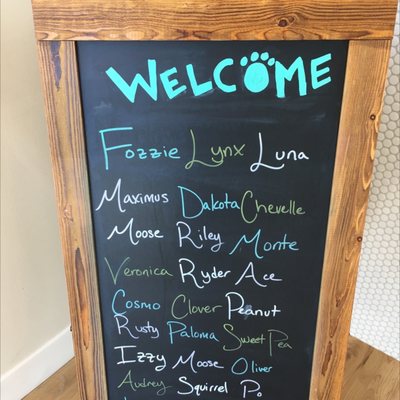 WELCOME
Fozzie Lynx Luna
Maximus Dakota Chevelle
Moose Riley Monte
Veronica Ryder Ace
Cosmo Clover Peanut
Rusty Paloma Sweet Pea
Izzy Moose Oliver
Audrey Squirrel P.